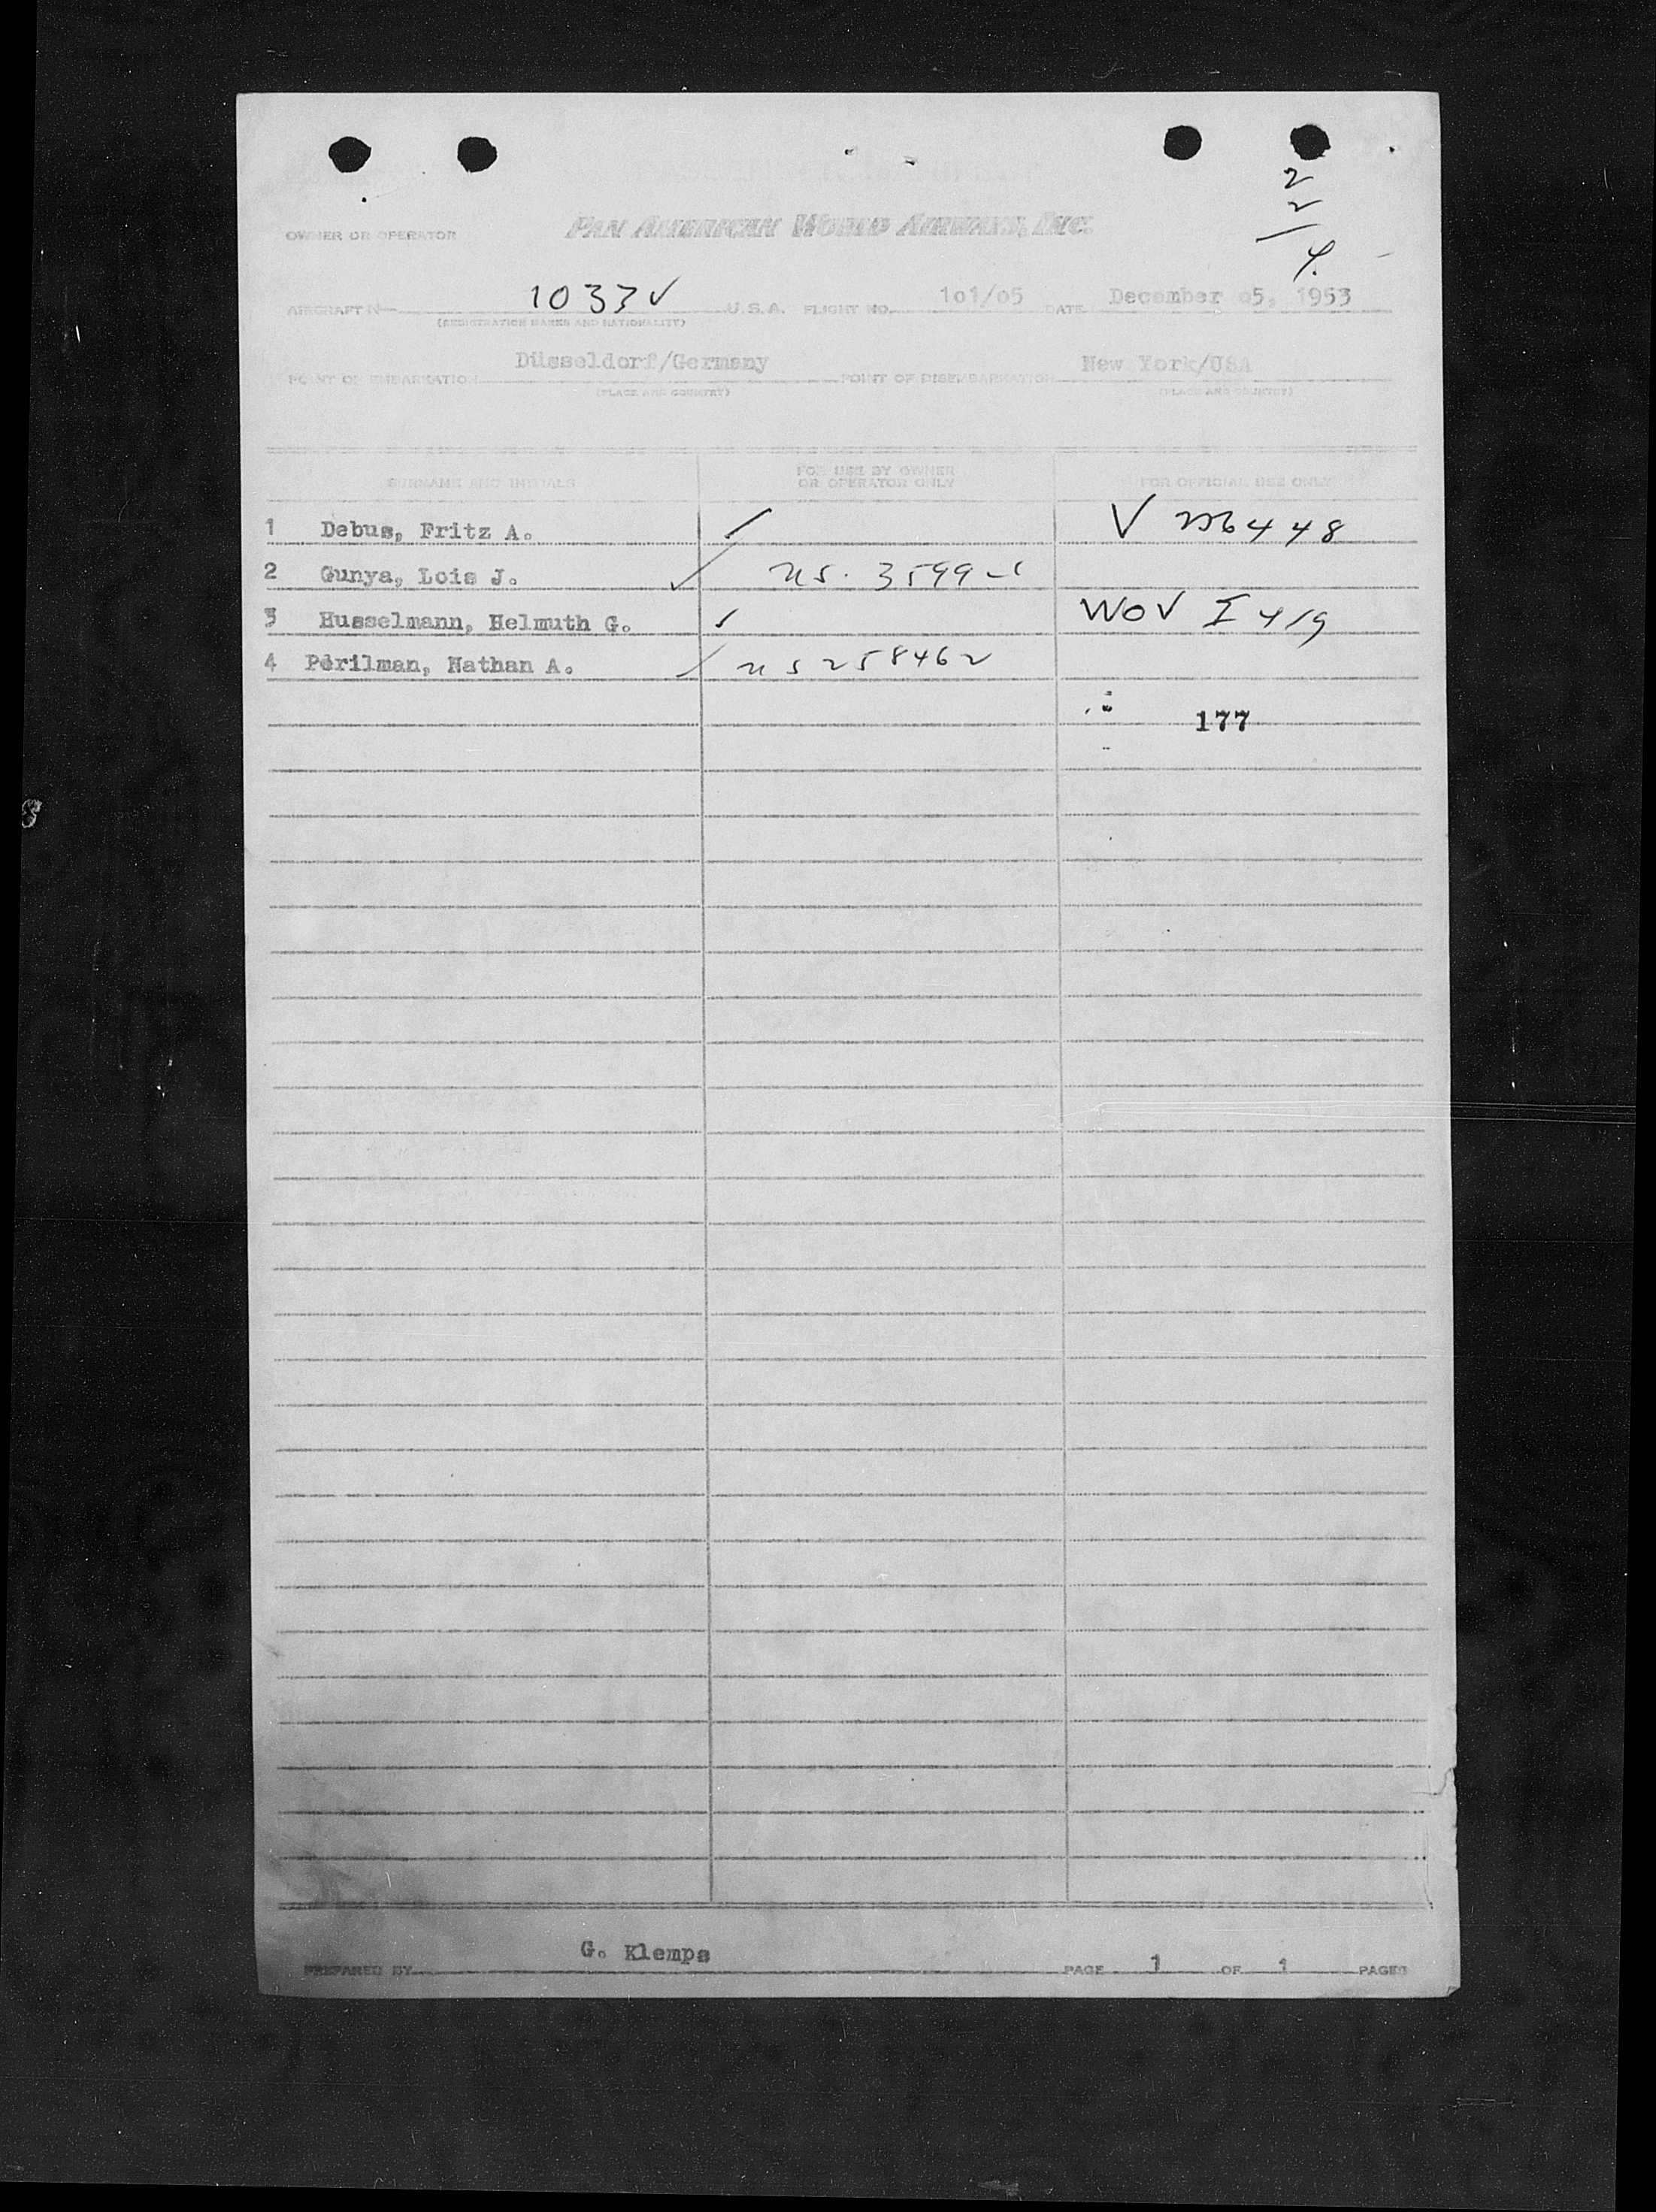 2
2
4.
OWNER OR OPERATOR PAN AMERICAN WORLD AIRWAYS, INC.
AIRCRAFT N 1033V U.S.A. FLIGHT NO. 1o1/o5 DATE December o5, 1953
(REGISTRATION MARKS AND NATIONALITY)
POINT OF EMBARKATION Düsseldorf/Germany POINT OF DISEMBARKATION New York/USA
(PLACE AND COUNTRY) (PLACE AND COUNTRY)
SURNAME AND INITIALS FOR USE BY OWNER OR OPERATOR ONLY FOR OFFICIAL USE ONLY
1 Debus, Fritz A. V 6448
2 Gunya, Lois J. US. 3599
3 Husselmann, Helmuth G. WOV I 419
4 Perilman, Nathan A. US 258462
177
G. Klemps
PREPARED BY PAGE 1 OF 1 PAGES